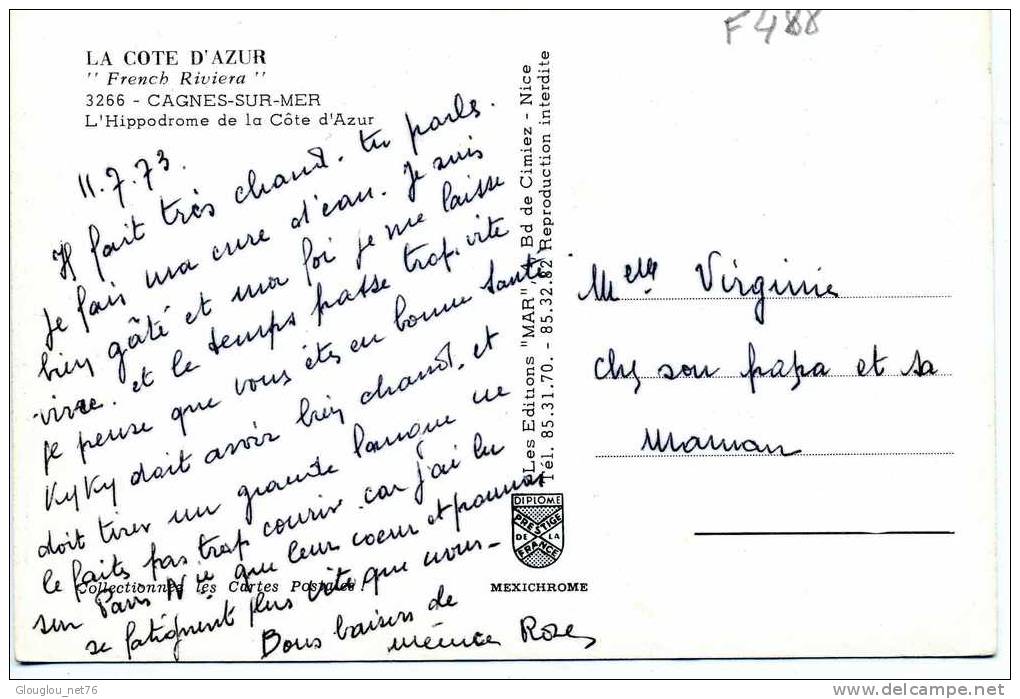 F488
LA COTE D'AZUR
" French Riviera "
3266 - CAGNES-SUR-MER
L'Hippodrome de la Côte d'Azur
11.7.73.
Il fait très chaud. tu parles.
Je fais ma cure d'eau. Je suis
bien gâté et ma foi je me laisse
vivre. et le temps passe trop vite
Je pense que vous êtes en bonne santé
KyKy doit avoir bien chaud. et
doit tirer une grande langue ne
le faits pas trop courir. car j'ai lu
sur Paris que leur coeur et poumons
se fatiguent plus vite que nous_
Bons baisers de
mémée Rose
Collectionnez les Cartes Postales !
Les Editions "MAR", Bd de Cimiez - Nice
Tél. 85.31.70. - 85.32.82 Reproduction interdite
DIPLOME
PRESTIGE
DE LA
FRANCE
MEXICHROME
Melle Virginie
chez son papa et sa
maman
Glouglou_net76
delcampe.net